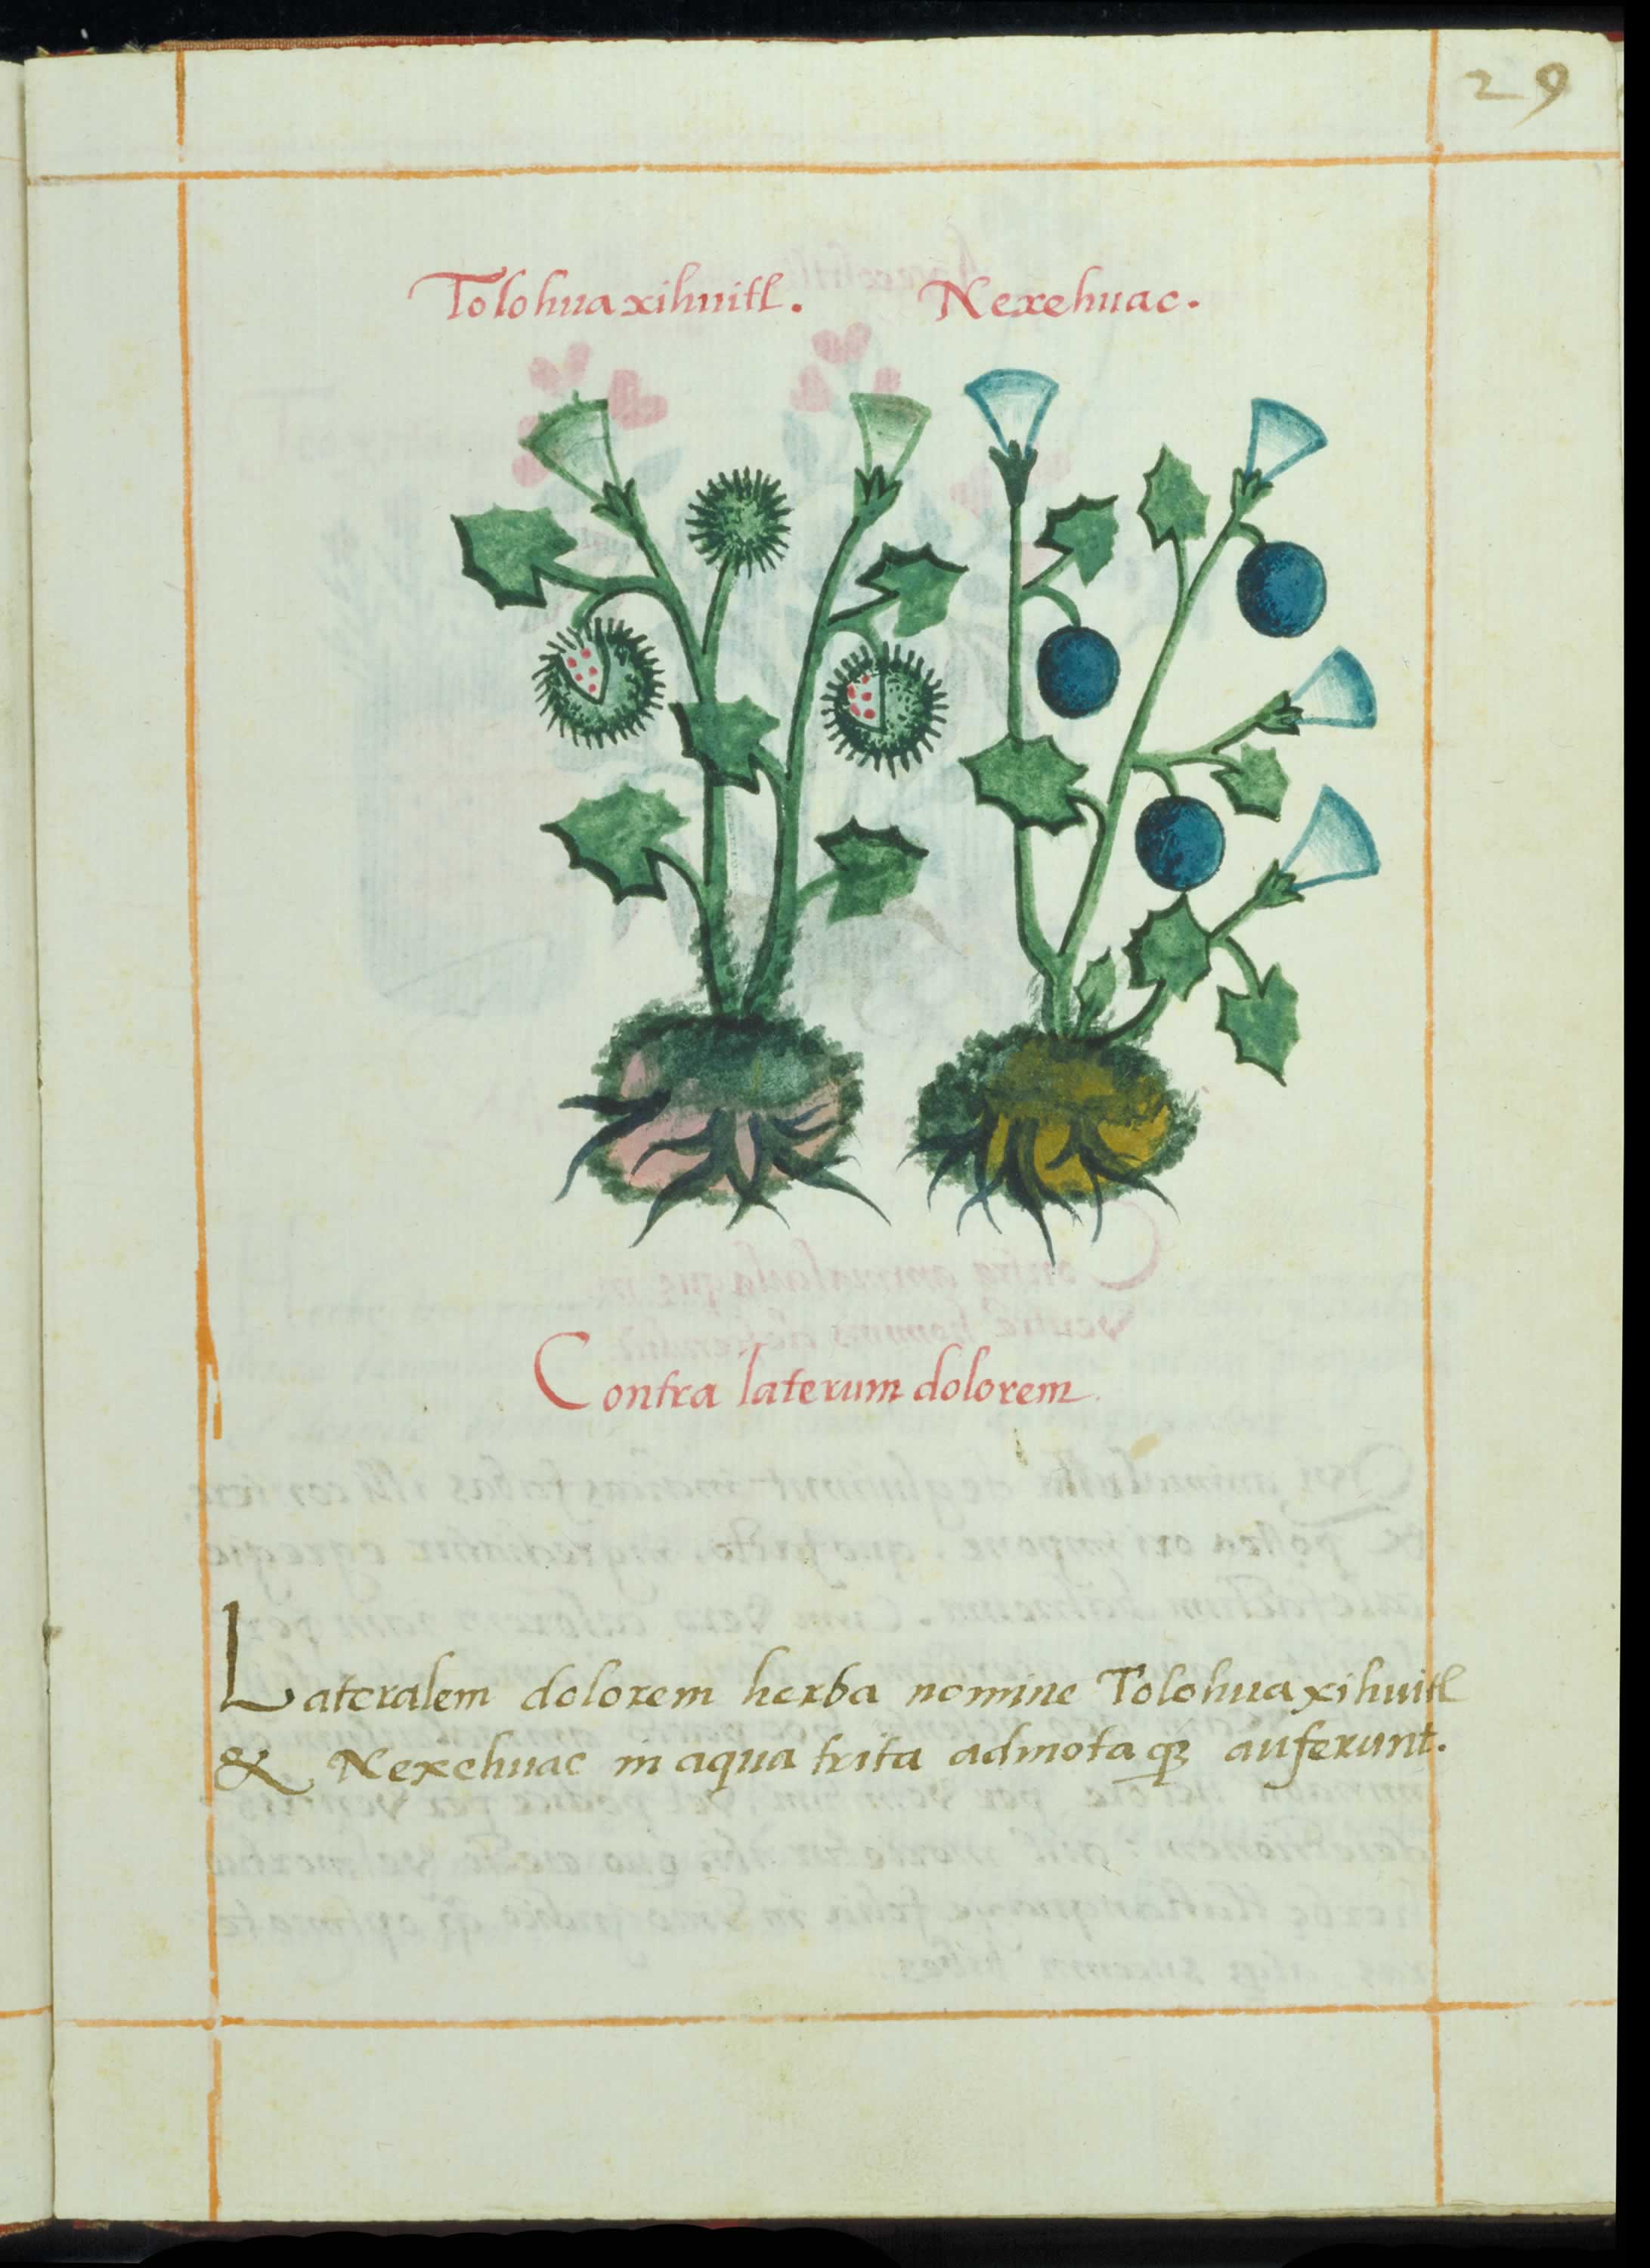 29
Tolohuaxihuitl. Nexehuac.
Contra laterum dolorem
Lateralem dolorem herba nomine Tolohuaxihuitl
& Nexehuac in aqua trita admotaq3 auferunt.